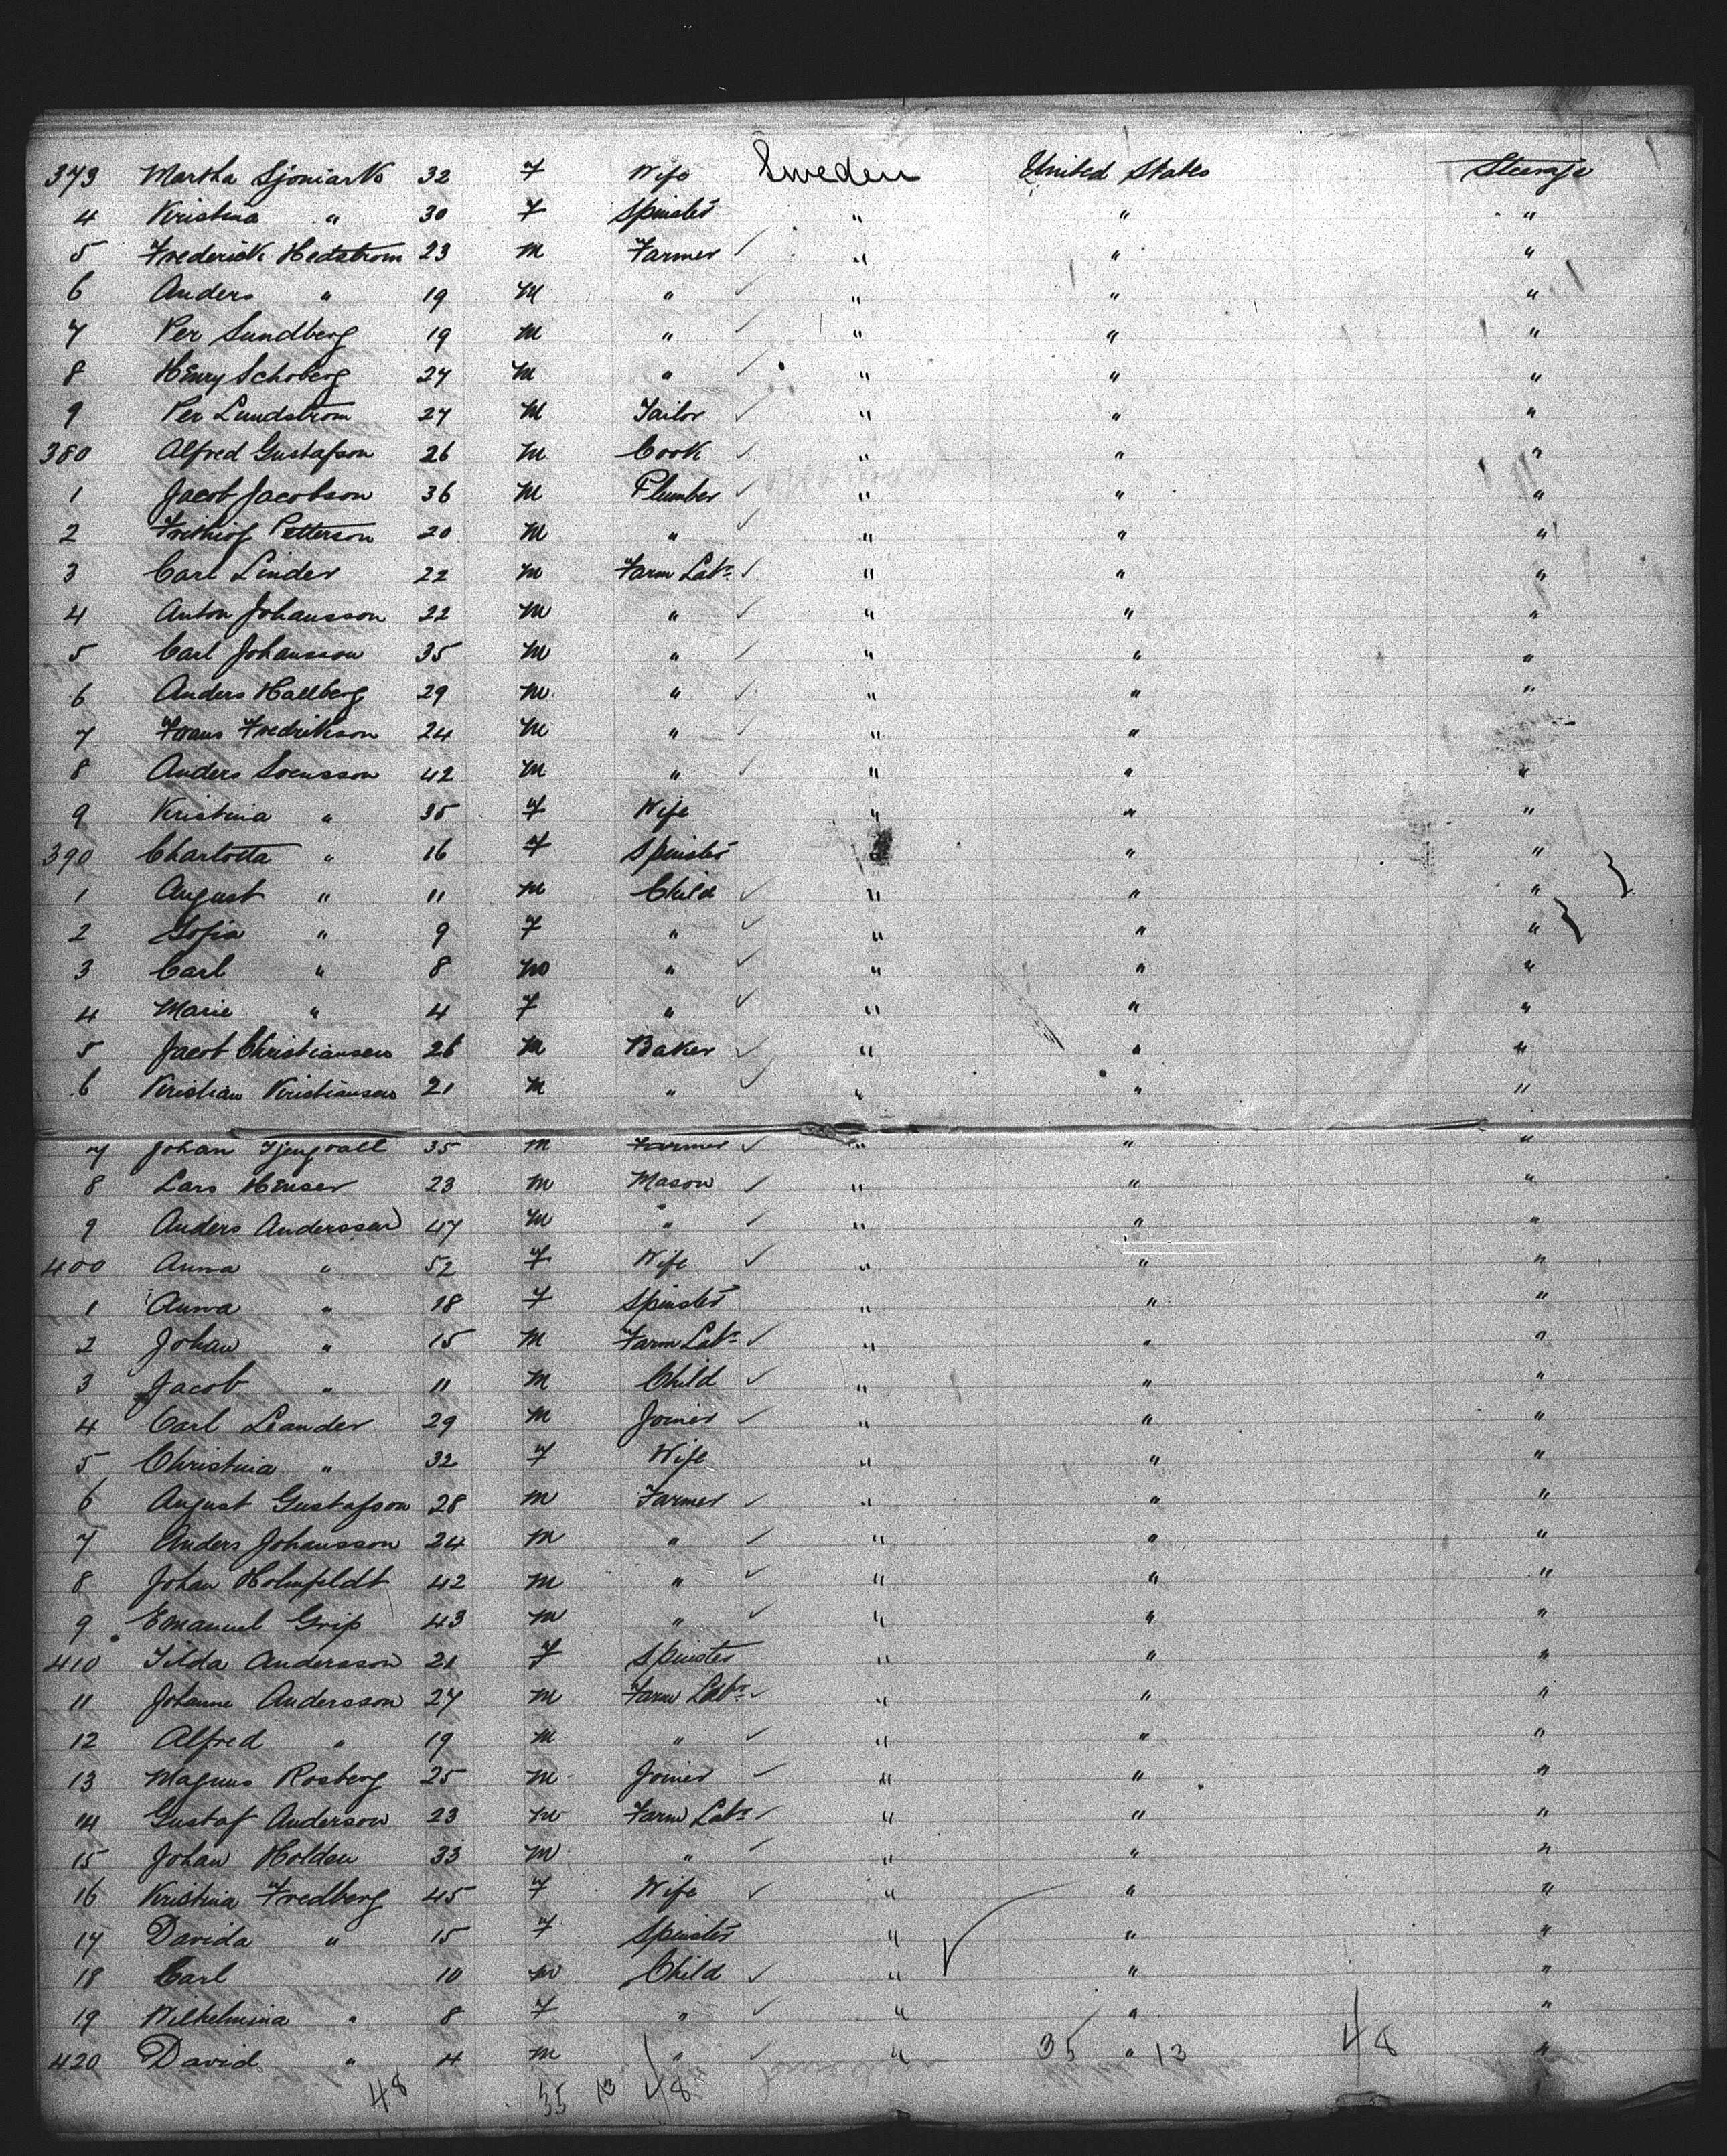 373 Martha Sjoniark 32 F Wife Sweden United States Steerage
4 Kristina " 30 F Spinster " " "
5 Frederick Hedstrom 23 M Farmer " " "
6 Anders " 19 M " " " "
7 Per Sundberg 19 M " " " "
8 Henry Schoberg 27 M " " " "
9 Per Lundstrom 27 M Tailor " " "
380 Alfred Gustafson 26 M Cook " " "
1 Jacob Jacobson 36 M Plumber " " "
2 Frithiof Petterson 20 M " " " "
3 Carl Linder 22 M Farm Labr " " "
4 Anton Johansson 22 M " " " "
5 Carl Johansson 35 M " " " "
6 Anders Hallberg 29 M " " " "
7 Frans Fredrikson 24 M " " "
8 Anders Svensson 42 M " " " "
9 Kristina " 35 F Wife " " "
390 Charlotta " 16 F Spinster " " "
1 August " 11 M Child " " "
2 Sofia " 9 F " " " "
3 Carl " 8 M " " " "
4 Marie " 4 F " " " "
5 Jacob Christiansen 26 M Baker " " "
6 Kristian Kristiansen 21 M " " " "
7 Johan 35 M Farmer " " "
8 Lars 23 M Mason " " "
9 Anders Anderssen 47 M " " " "
400 Anna " 52 F Wife " " "
1 Anna " 18 F Spinster " " "
2 Johan " 15 M Farm Labr " " "
3 Jacob " 11 M Child " " "
4 Carl Leander 29 M Joiner " " "
5 Christina " 32 F Wife " " "
6 August Gustafson 28 M Farmer " " "
7 Anders Johansson 24 M " " " "
8 Johan Holmfeldt 42 M " " " "
9 Emanuel Grip 43 M " " " "
410 Tilda Andersson 21 F Spinster " " "
11 Johanne Andersson 27 M Farm Labr " " "
12 Alfred " 19 M " " " "
13 Magnus Rosberg 25 M Joiner " " "
14 Gustaf Anderson 23 M Farm Labr " " "
15 Johan Holden 33 M " " " "
16 Kristina Fredberg 45 F Wife " " "
17 Davida " 15 F Spinster " " "
18 Carl 10 M Child " " "
19 Wilhelmina " 8 F " " " "
420 David " 4 M " " 35 " 13 48 "
48 35 13 48